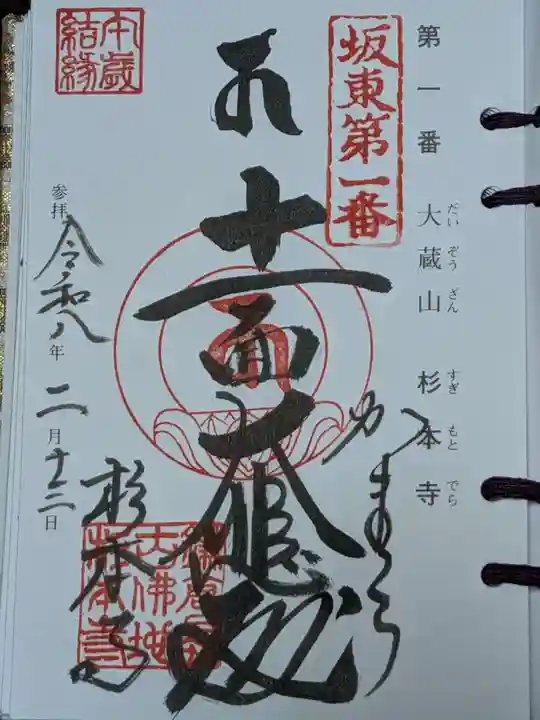 第一番 大蔵山 杉本寺
だいぞうざん すぎもとでら
坂東第一番
かまくら
十一面大悲殿
本歳
結縁
参拝 令和八年二月十二日
杉本寺
大佛地
杉本寺